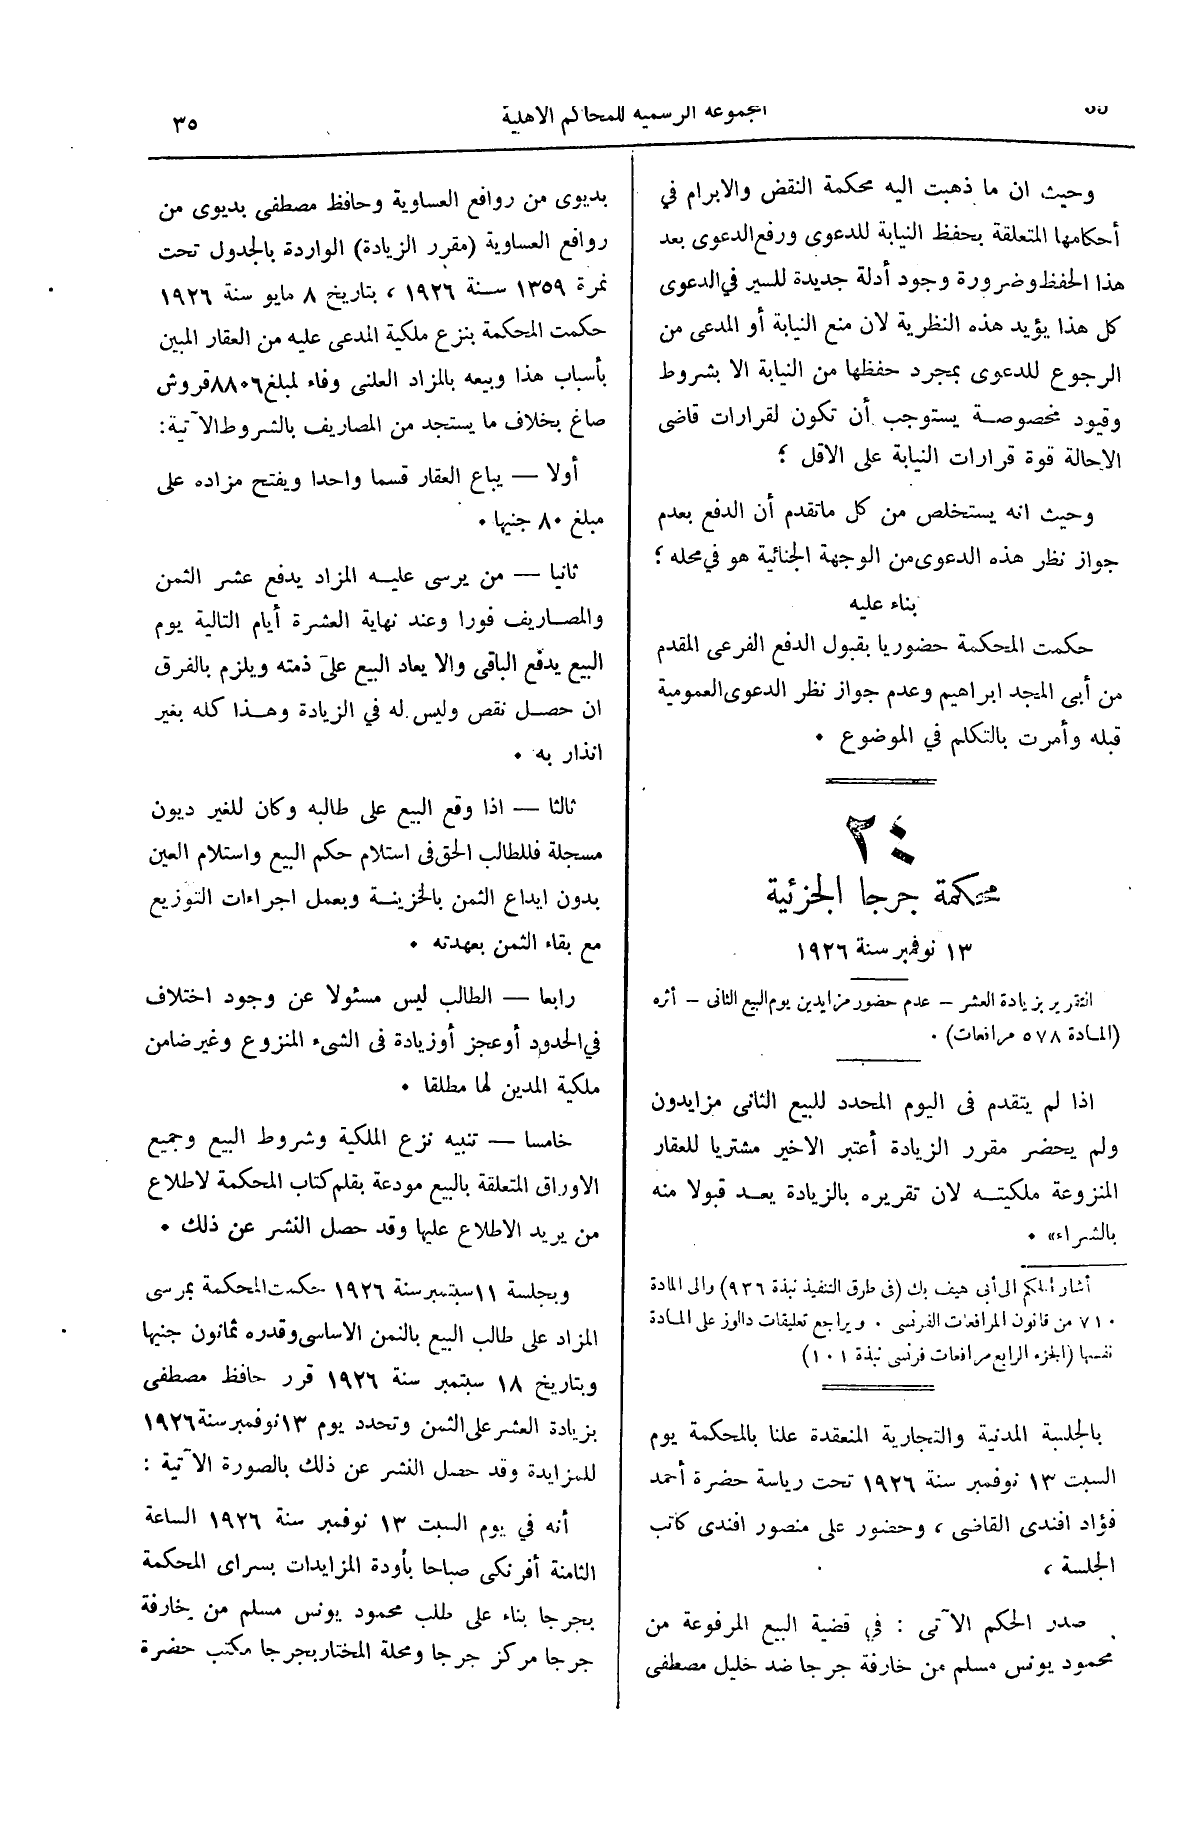 المجموعه الرسميه للمحاكم الاهلية
٣٥
وحيث ان ما ذهبت اليه محكمة النقض والابرام في
أحكامها المتعلقة بحفظ النيابة للدعوى ورفع الدعوى بعد
هذا الحفظ وضرورة وجود أدلة جديدة للسير في الدعوى
كل هذا يؤيد هذه النظرية لان منع النيابة أو المدعى من
الرجوع للدعوى بمجرد حفظها من النيابة الا بشروط
وقيود مخصوصة يستوجب أن تكون لقرارات قاضى
الاحالة قوة قرارات النيابة على الاقل ؛
وحيث انه يستخلص من كل ماتقدم أن الدفع بعدم
جواز نظر هذه الدعوى من الوجهة الجنائية هو في محله ؛
بناء عليه
حكمت المحكمة حضوريا بقبول الدفع الفرعى المقدم
من أبى المجد ابراهيم وعدم جواز نظر الدعوى العمومية
قبله وأمرت بالتكلم في الموضوع ٠
٢٠
محكمة جرجا الجزئية
١٣ نوفمبر سنة ١٩٢٦
التقرير بزيادة العشر – عدم حضور مزايدين يوم البيع الثانى – أثره
(المادة ٥٧٨ مرافعات) ٠
اذا لم يتقدم فى اليوم المحدد للبيع الثانى مزايدون
ولم يحضر مقرر الزيادة أعتبر الاخير مشتريا للعقار
المنزوعة ملكيته لان تقريره بالزيادة يعد قبولا منه
بالشراء» ٠
أشار الحكم الى أبى هيف بك (فى طرق التنفيذ نبذة ٩٣٦) والى المادة
٧١٠ من قانون المرافعات الفرنسى ٠ ويراجع تعليقات دالوز على المادة
نفسها (الجزء الرابع مرافعات فرنسى نبذة ١٠١)
بالجلسة المدنية والتجارية المنعقدة علنا بالمحكمة يوم
السبت ١٣ نوفمبر سنة ١٩٢٦ تحت رياسة حضرة أحمد
فؤاد افندى القاضى ، وحضور على منصور افندى كاتب
الجلسة ،
صدر الحكم الآتى : في قضية البيع المرفوعة من
محمود يونس مسلم من خارفة جرجا ضد خليل مصطفى
بديوى من روافع العساوية وحافظ مصطفى بديوى من
روافع العساوية (مقرر الزيادة) الواردة بالجدول تحت
نمرة ١٣٥٩ سنة ١٩٢٦ ، بتاريخ ٨ مايو سنة ١٩٢٦
حكمت المحكمة بنزع ملكية المدعى عليه من العقار المبين
بأسباب هذا وبيعه بالمزاد العلنى وفاء لمبلغ ٨٨٠٦ قروش
صاغ بخلاف ما يستجد من المصاريف بالشروط الآتية :
أولا — يباع العقار قسما واحدا ويفتح مزاده على
مبلغ ٨٠ جنيها ٠
ثانيا — من يرسى عليه المزاد يدفع عشر الثمن
والمصاريف فورا وعند نهاية العشرة أيام التالية يوم
البيع يدفع الباقى والا يعاد البيع على ذمته ويلزم بالفرق
ان حصل نقص وليس له في الزيادة وهذا كله بغير
انذار به ٠
ثالثا — اذا وقع البيع على طالبه وكان للغير ديون
مسجلة فللطالب الحق فى استلام حكم البيع واستلام العين
بدون ايداع الثمن بالخزينة وبعمل اجراءات التوزيع
مع بقاء الثمن بعهدته ٠
رابعا — الطالب ليس مسئولا عن وجود اختلاف
في الحدود أو عجز أو زيادة فى الشىء المنزوع وغير ضامن
ملكية المدين لها مطلقا ٠
خامسا — تنبيه نزع الملكية وشروط البيع وجميع
الاوراق المتعلقة بالبيع مودعة بقلم كتاب المحكمة لاطلاع
من يريد الاطلاع عليها وقد حصل النشر عن ذلك ٠
وبجلسة ١١ سبتمبر سنة ١٩٢٦ حكمت المحكمة بمرسى
المزاد على طالب البيع بالثمن الاساسى وقدره ثمانون جنيها
وبتاريخ ١٨ سبتمبر سنة ١٩٢٦ قرر حافظ مصطفى
بزيادة العشر على الثمن وتحدد يوم ١٣ نوفمبر سنة ١٩٢٦
للمزايدة وقد حصل النشر عن ذلك بالصورة الآتية :
أنه في يوم السبت ١٣ نوفمبر سنة ١٩٢٦ الساعة
الثامنة أفرنكى صباحا بأودة المزايدات بسراى المحكمة
بجرجا بناء على طلب محمود يونس مسلم من خارفة
جرجا مركز جرجا ومحلة المختار بجرجا مكتب حضرة